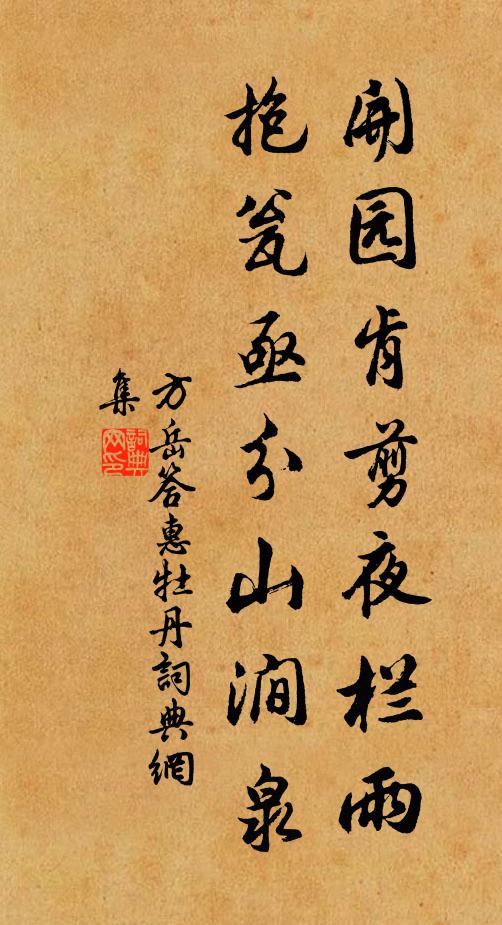 開园肯剪夜栏雨
抱瓮亟分山涧泉
方岳答惠牡丹詞典網
集
詞典
网印